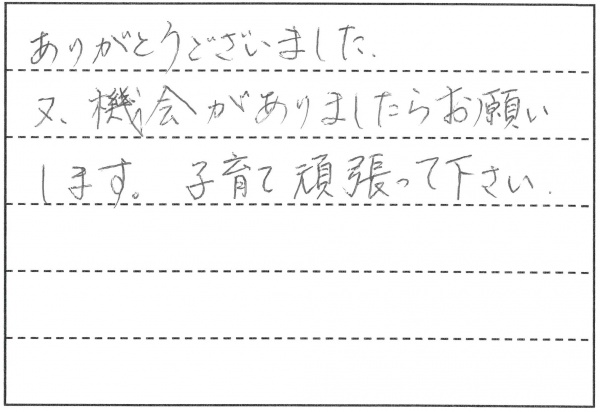 ありがとうございました.
又、機会がありましたらお願い
します。子育て頑張って下さい.